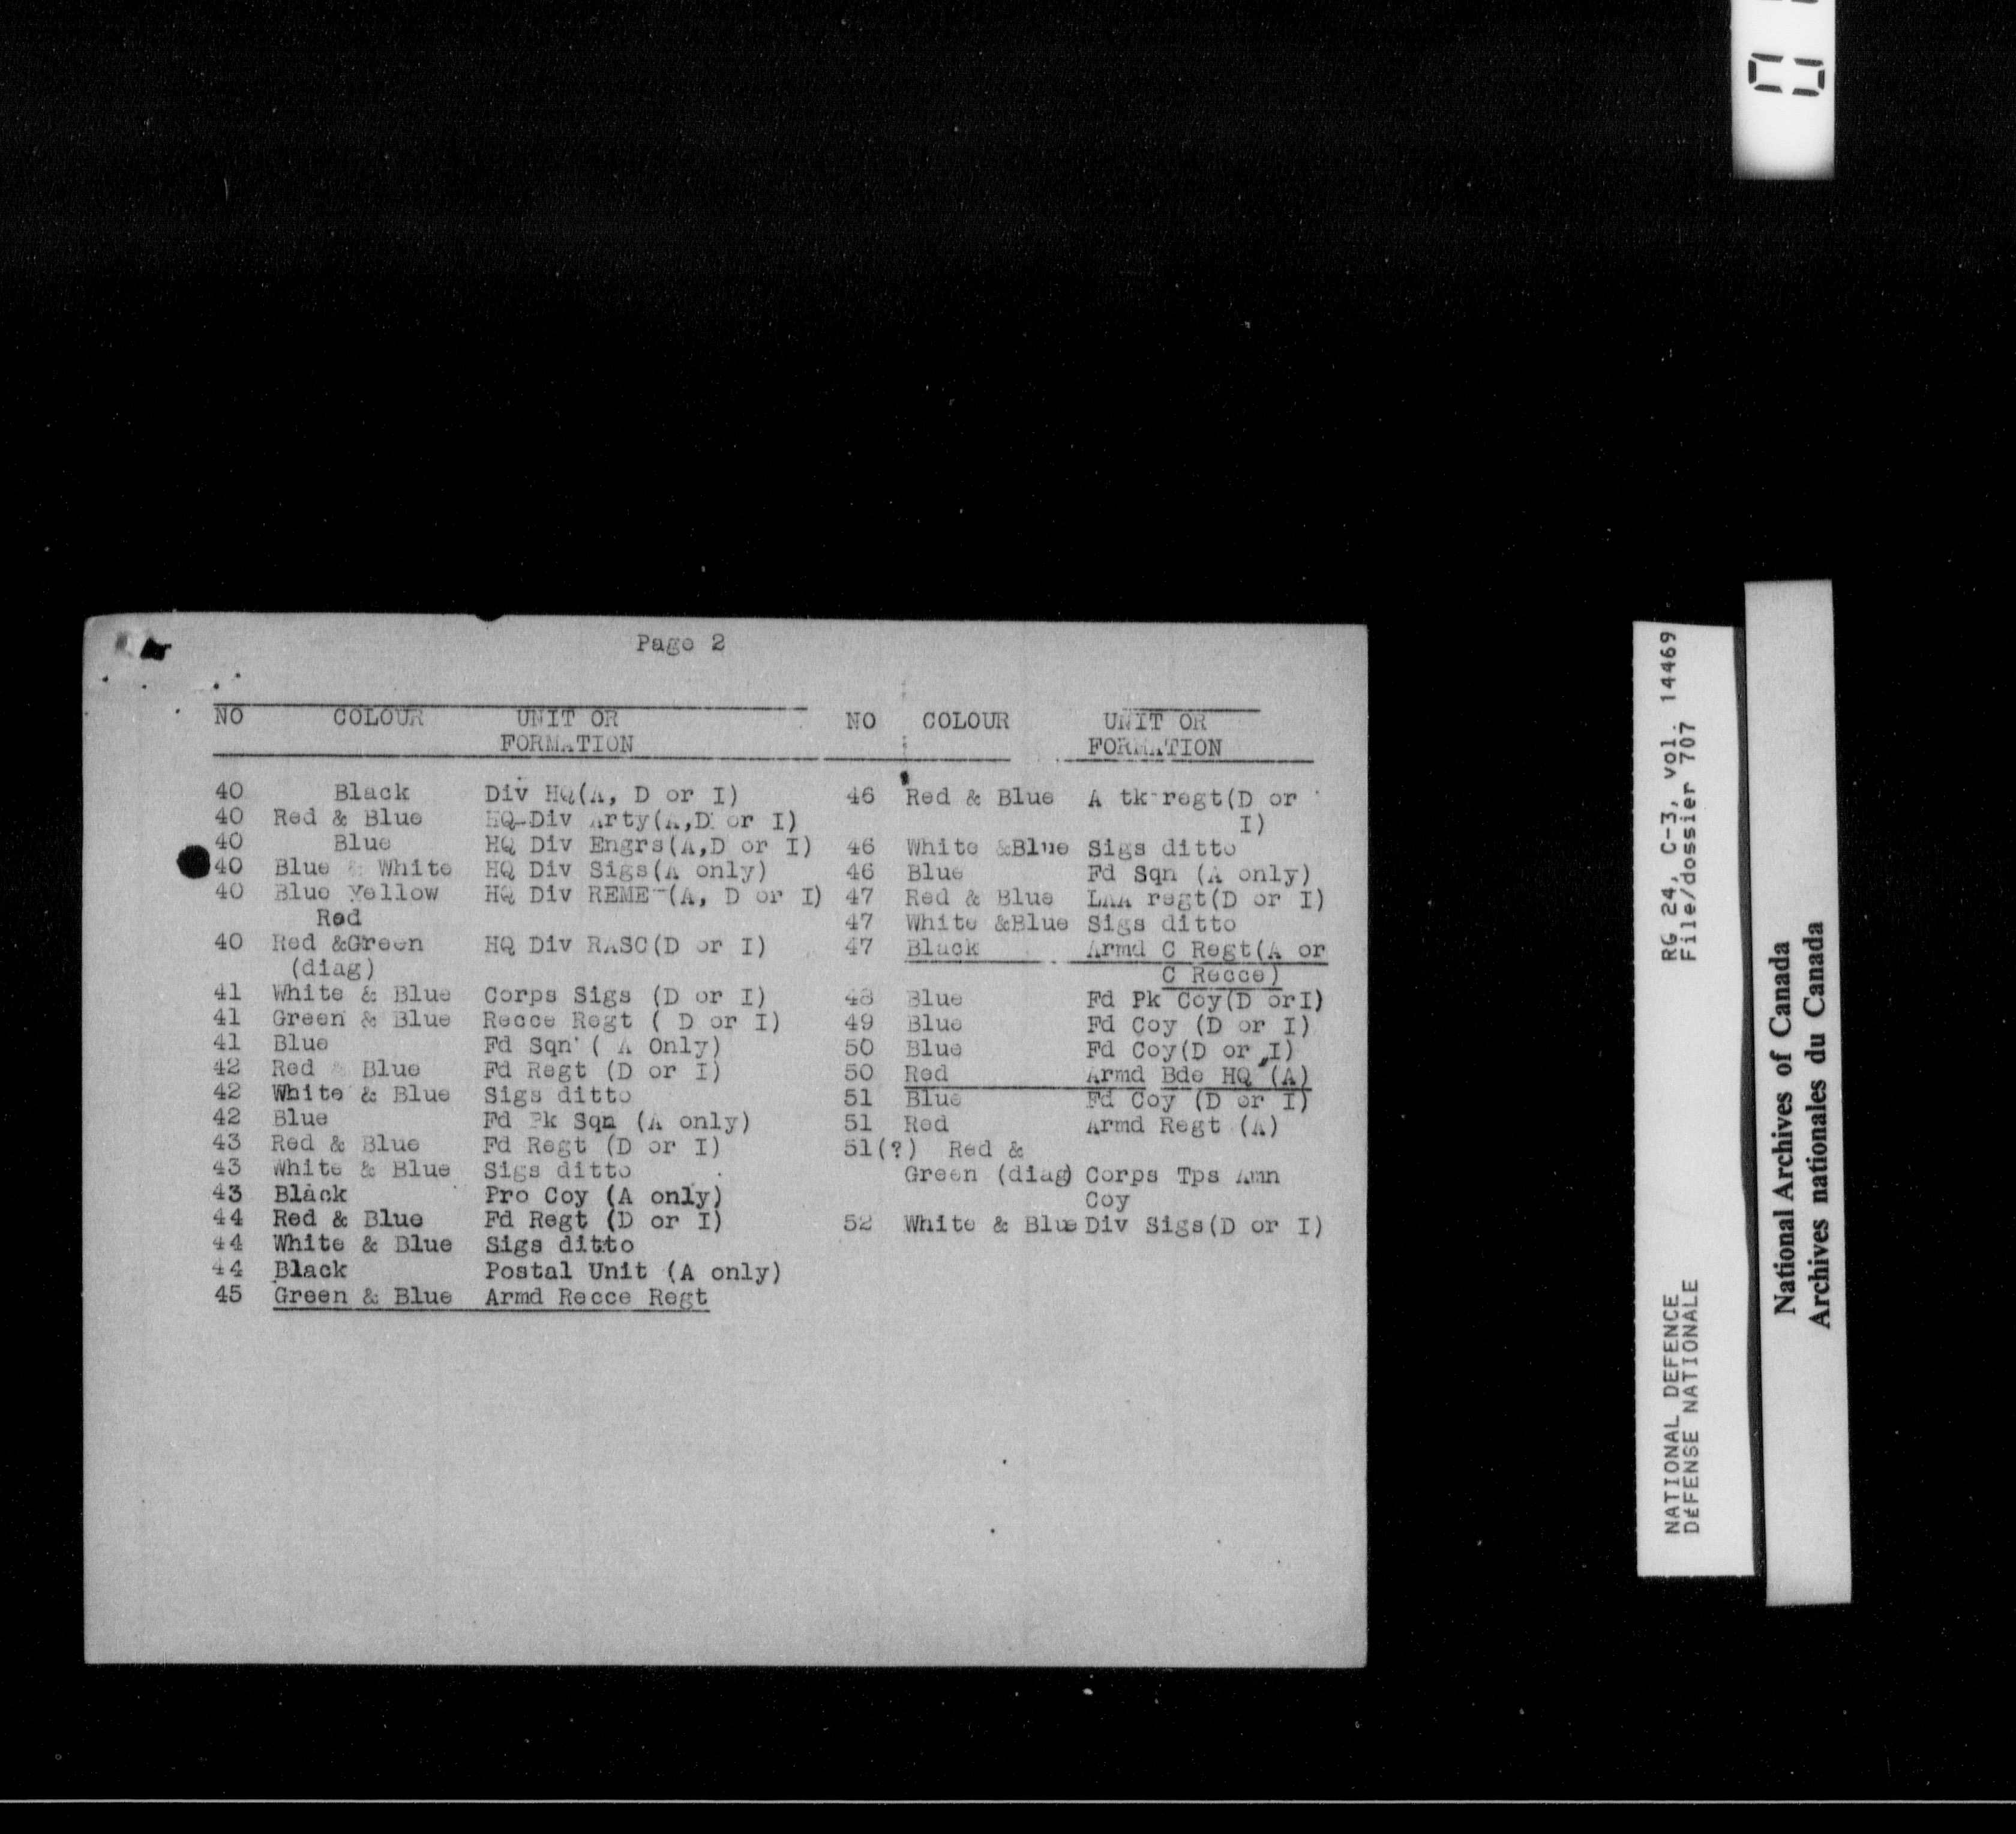 Page 2
NO COLOUR UNIT OR
FORMATION
40 Black Div HQ(A, D or I)
40 Red & Blue HQ-Div Arty(A,D or I)
40 Blue HQ Div Engrs(A,D or I)
40 Blue & White HQ Div Sigs(A only)
40 Blue Yellow HQ Div REME-(A, D or I)
Red
40 Red &Green HQ Div RASC(D or I)
(diag)
41 White & Blue Corps Sigs (D or I)
41 Green & Blue Recce Regt ( D or I)
41 Blue Fd Sqn ( A Only)
42 Red & Blue Fd Regt (D or I)
42 White & Blue Sigs ditto
42 Blue Fd Pk Sqn (A only)
43 Red & Blue Fd Regt (D or I)
43 White & Blue Sigs ditto
43 Black Pro Coy (A only)
44 Red & Blue Fd Regt (D or I)
44 White & Blue Sigs ditto
44 Black Postal Unit (A only)
45 Green & Blue Armd Recce Regt
NO COLOUR UNIT OR
FORMATION
46 Red & Blue A tk regt(D or
I)
46 White &Blue Sigs ditto
46 Blue Fd Sqn (A only)
47 Red & Blue LAA regt(D or I)
47 White &Blue Sigs ditto
47 Black Armd C Regt(A or
C Recce)
48 Blue Fd Pk Coy(D orI)
49 Blue Fd Coy (D or I)
50 Blue Fd Coy(D or I)
50 Red Armd Bde HQ (A)
51 Blue Fd Coy (D or I)
51 Red Armd Regt (A)
51(?) Red &
Green (diag) Corps Tps Amn
Coy
52 White & Blue Div Sigs(D or I)
RG 24, C-3, vol. 14469
File/dossier 707
NATIONAL DEFENCE
DÉFENSE NATIONALE
National Archives of Canada
Archives nationales du Canada